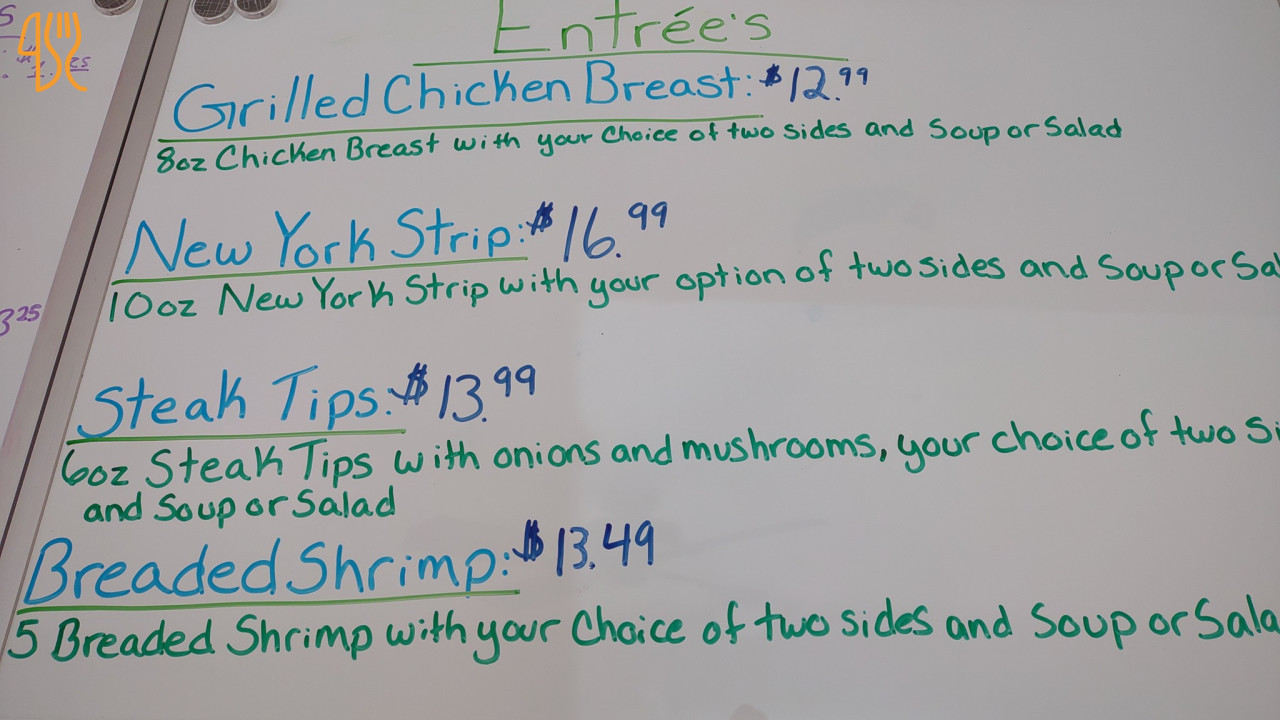 Entrée's
Grilled Chicken Breast: $12.99
8oz Chicken Breast with your Choice of two sides and Soup or Salad
New York Strip: $16.99
10oz New York Strip with your option of two sides and Soup or Sa
Steak Tips: $13.99
6oz Steak Tips with onions and mushrooms, your choice of two Si
and Soup or Salad
Breaded Shrimp: $13.49
5 Breaded Shrimp with your Choice of two sides and Soup or Sala
325